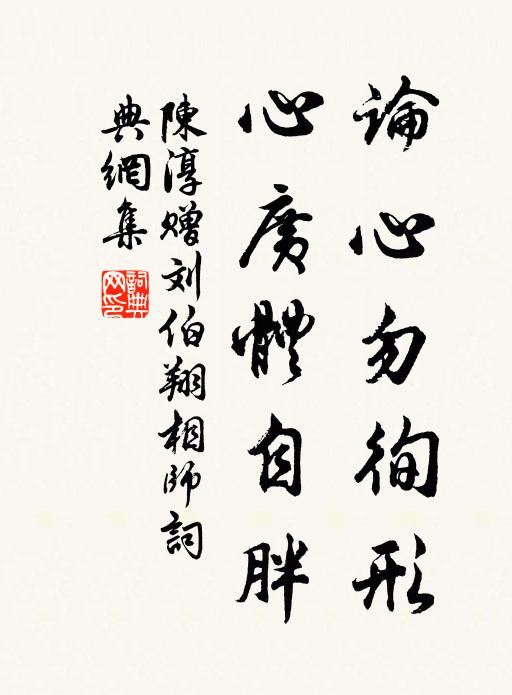 論心勿徇形
心廣體自胖
陳淳贈刘伯翔相師詞
典網集
詞典
网印